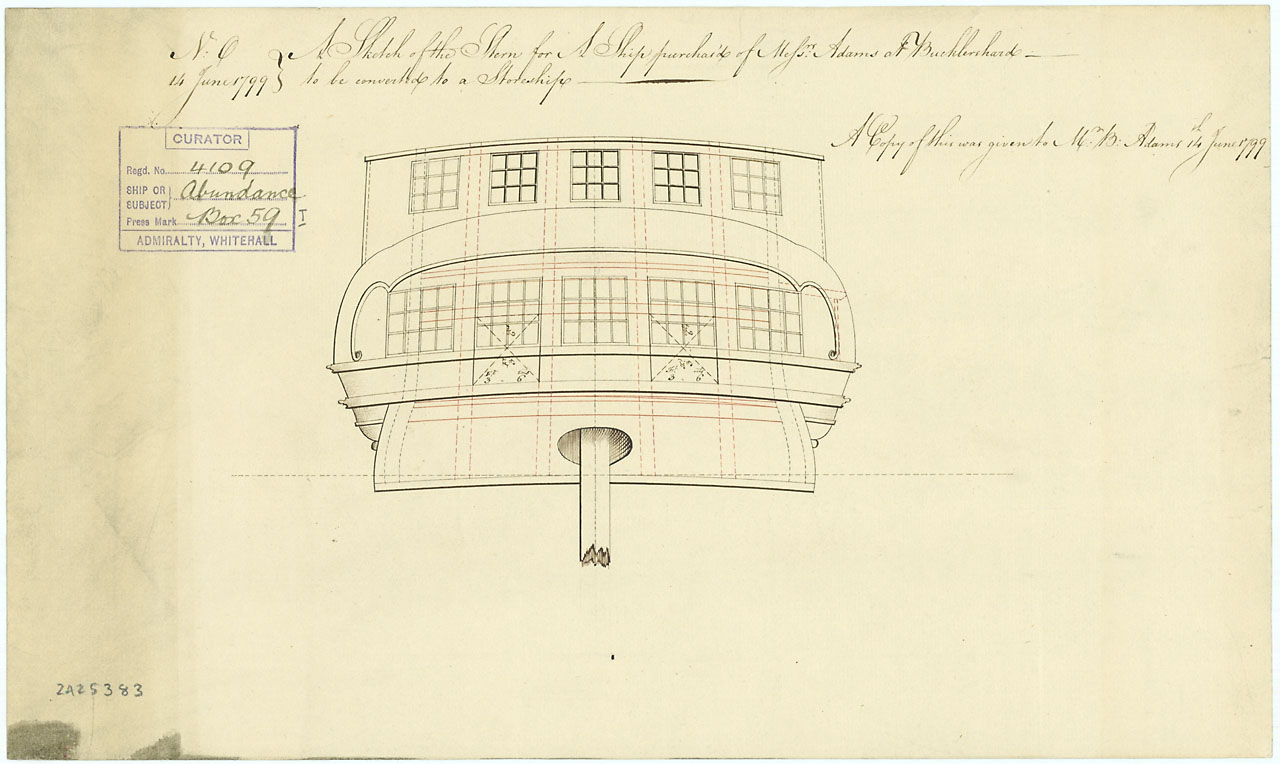 No. 6 } A Sketch of the Stern for A Ship purchas'd of Messrs. Adams at Bucklershard
14 June 1799 } to be converted to a Storeship
A Copy of this was given to Mr. B. Adams 14th June 1799
CURATOR
Regd. No. 4109
SHIP OR SUBJECT} Abundance
Press Mark Box 59 I
ADMIRALTY, WHITEHALL
ZAZ5383